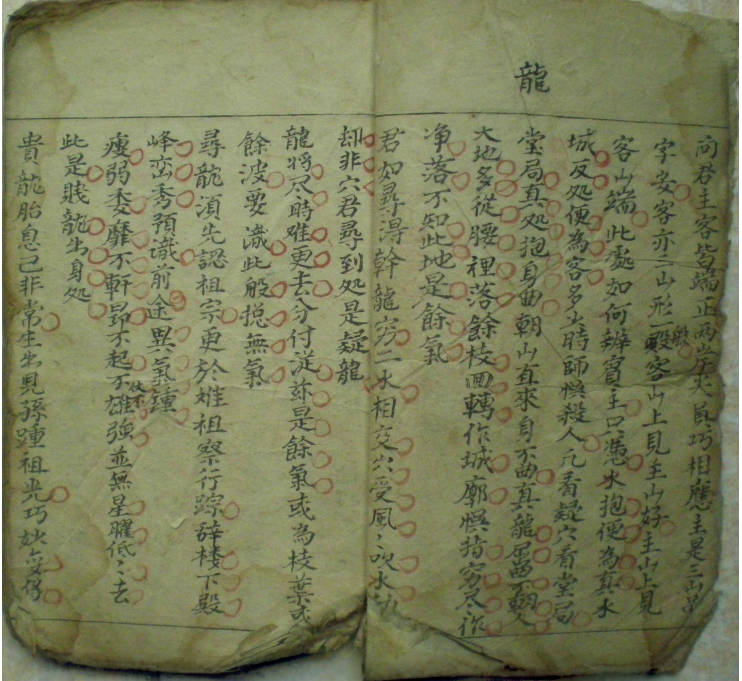 龍
向君主客皆端正兩岸尖員巧相應主是三山品
字安客亦三山形一般客山上見主山好主山上見
客山端此處如何辨賓主只憑水抱便為真水
城反処便為客多少時師悞殺人凡看疑穴看堂局
堂局真処抱身曲朝山直來身不曲真龍
大地多從腰裡落餘枝回轉作城廓悞指穷尽作
净落不知此地是餘氣
君如尋淂幹龍穷二水相交穴受風〻吹水劫
却非穴君尋到処是疑龍
龍將尽時难更去分付從茲是餘氣或為枝葉或
餘波要識此般捴無氣
尋龍須先認祖宗更於姓祖察行踪辞楼下殿
峰峦秀預識前途異氣鍾
瘦弱委靡不軒昂不起不雄強並無星曜低〻去
此是賤龍出身処
貴龍胎息已非常生出児孫踵祖光巧妙